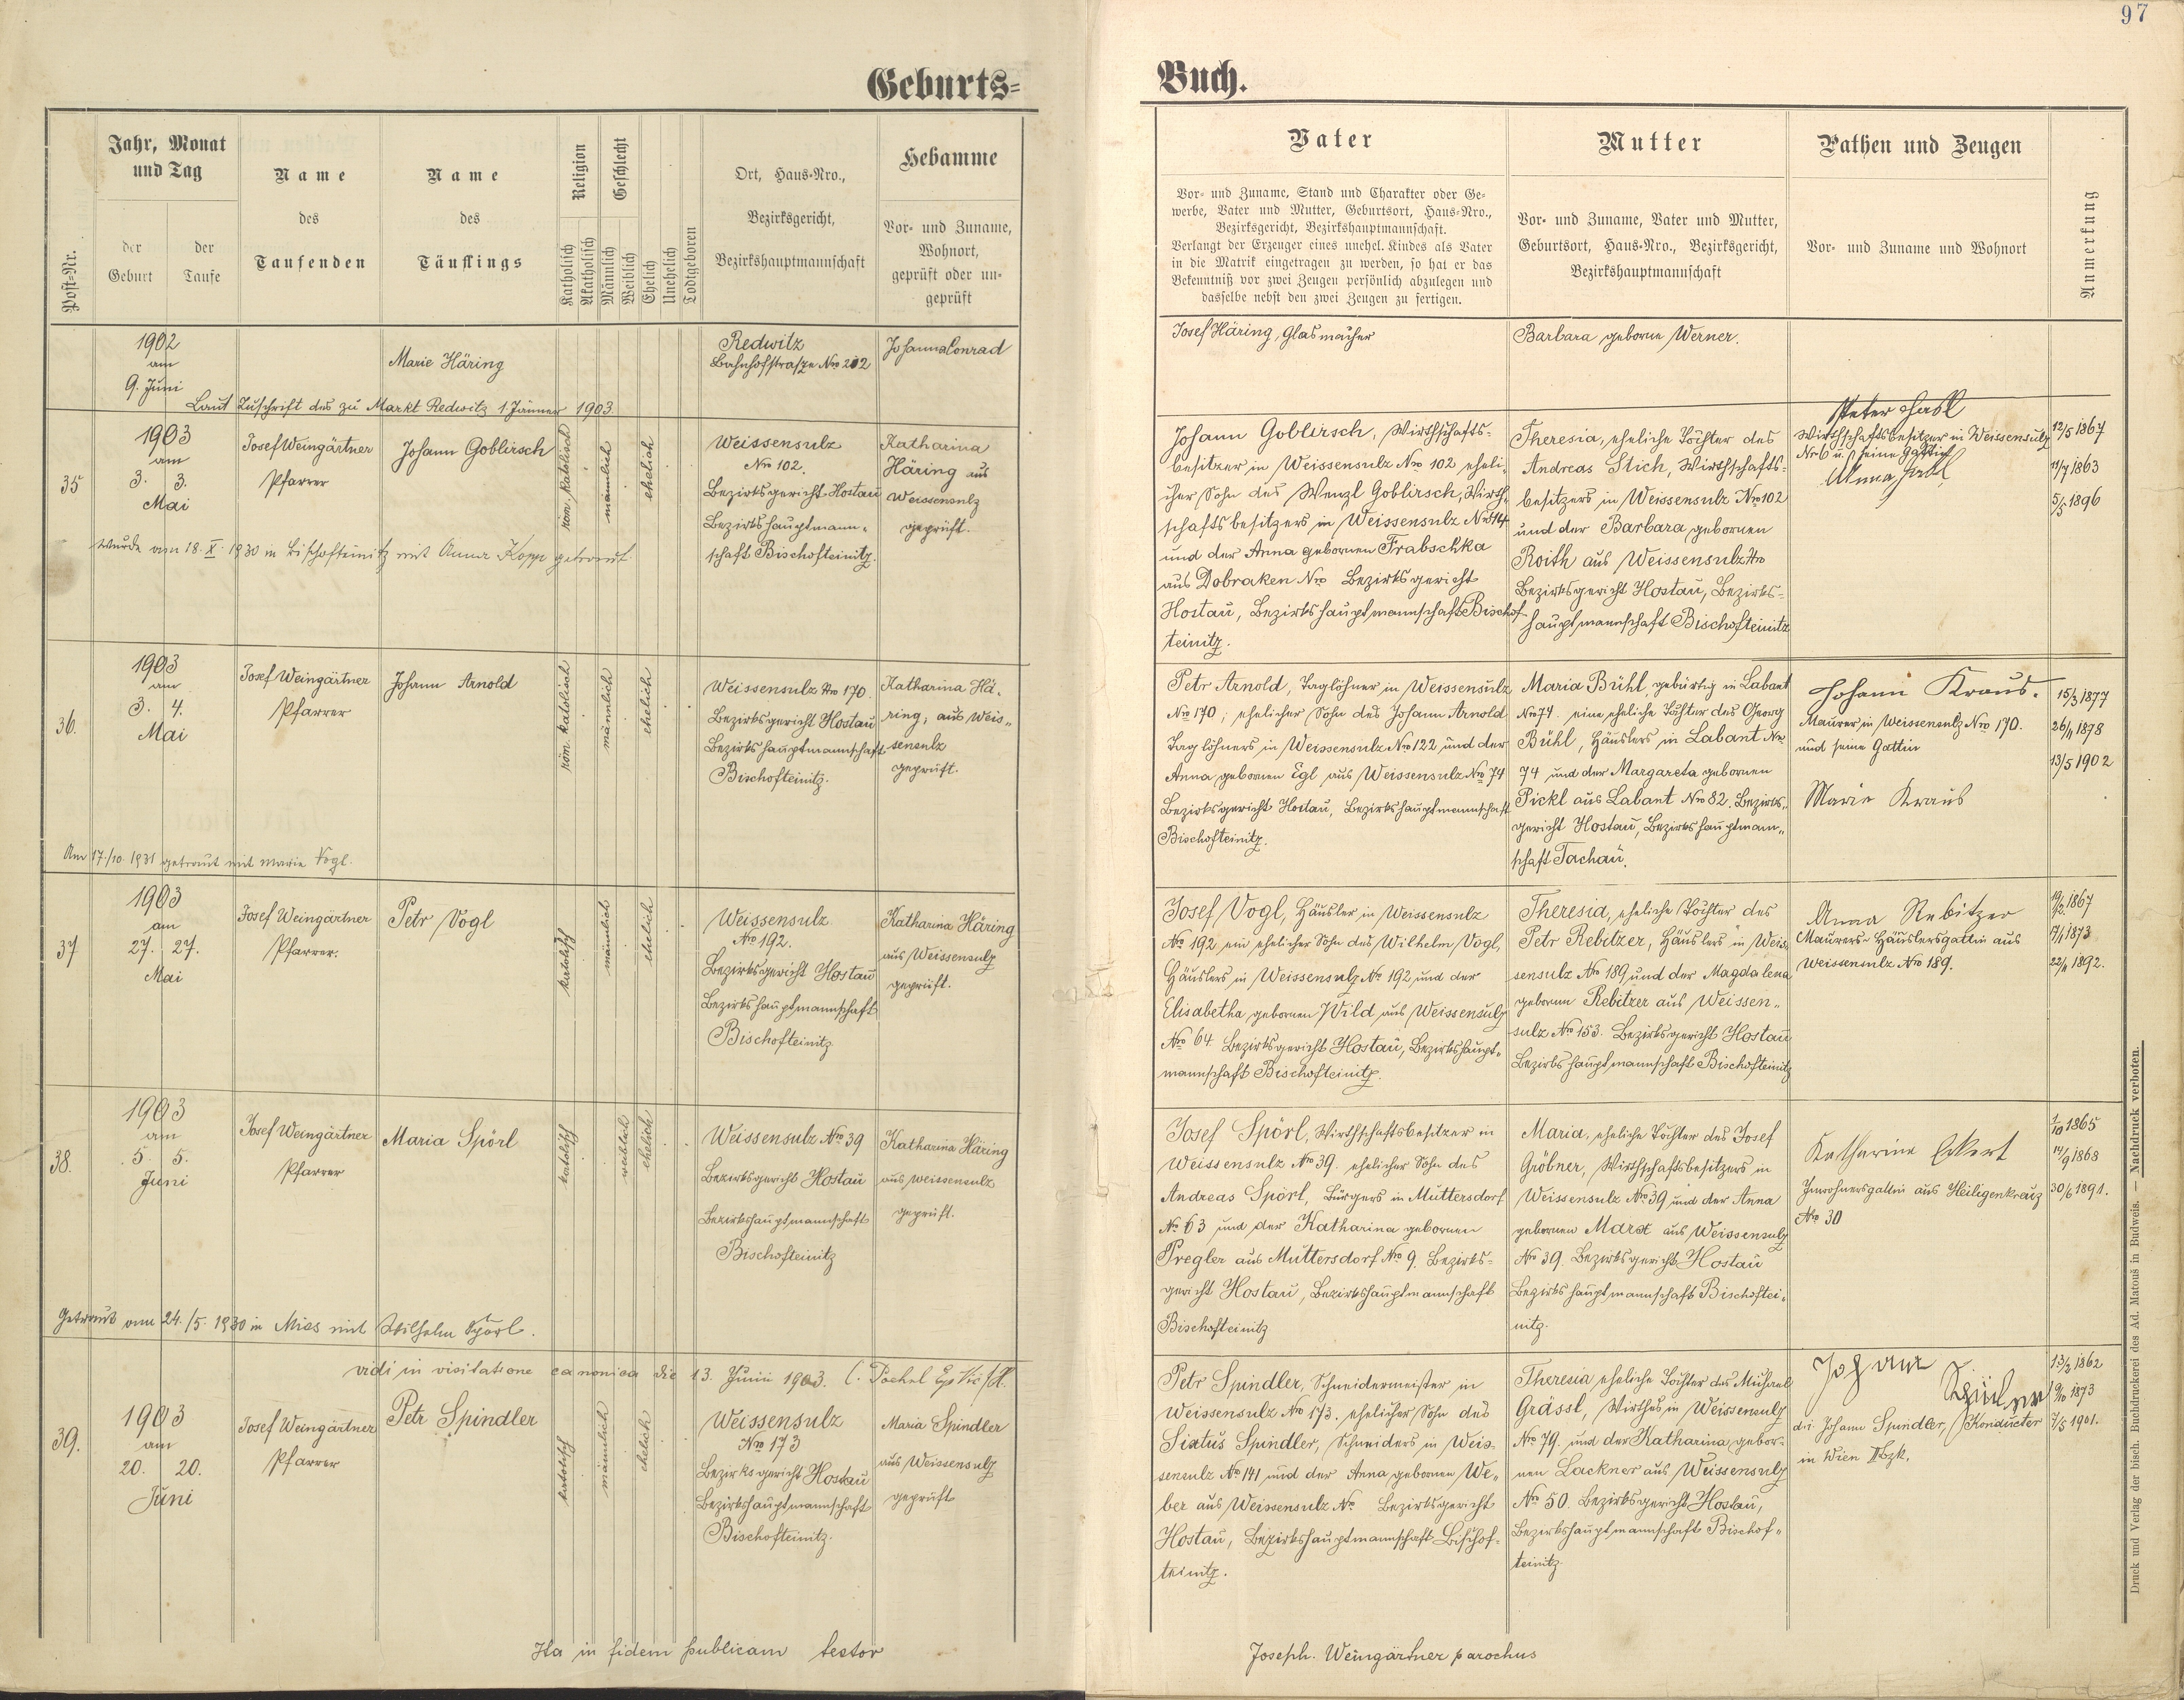 97
Geburts-
Buch.
Post-Nr.
Jahr, Monat
und Tag
der
Geburt
der
Taufe
Name
des
Taufenden
Name
des
Täuflings
Religion
Katholisch
Akatholisch
Geschlecht
Männlich
Weiblich
Ehelich
Unehelich
Todtgeboren
Ort, Haus-Nro.,
Bezirksgericht,
Bezirkshauptmannschaft
Hebamme
Vor- und Zuname,
Wohnort,
geprüft oder un-
geprüft
Vater
Vor- und Zuname, Stand und Charakter oder Ge-
werbe, Vater und Mutter, Geburtsort, Haus-Nro.,
Bezirksgericht, Bezirkshauptmannschaft.
Verlangt der Erzeuger eines unehel. Kindes als Vater
in die Matrik eingetragen zu werden, so hat er das
Bekenntniß vor zwei Zeugen persönlich abzulegen und
dasselbe nebst den zwei Zeugen zu fertigen.
Mutter
Vor- und Zuname, Vater und Mutter,
Geburtsort, Haus-Nro., Bezirksgericht,
Bezirkshauptmannschaft
Pathen und Zeugen
Vor- und Zuname und Wohnort
Anmerkung
1902
am
9. Juni
Marie Häring
Redwitz
Bahnhofstraße Nro 202
Johanna Conrad
Josef Häring, Glasmacher
Barbara geborne Werner.
Laut Zuschrift des zu Markt Redwitz 1. Jänner 1903.
35
1903
am
3. 3.
Mai
Josef Weingärtner
Pfarrer
Johann Goblirsch
röm. katolisch
männlich
ehelich
Weissensulz
Nro 102.
Bezirksgericht Hostau
Bezirkshauptmann-
schaft Bischofteinitz.
Katharina
Häring aus
Weissensulz
geprüft.
Johann Goblirsch, Wirthschafts-
besitzer in Weissensulz Nro 102 eheli-
cher Sohn des Wenzl Goblirsch, Wirth-
schaftsbesitzers in Weissensulz Nro 114
und der Anna gebornen Frabschka
aus Dobraken Nro Bezirksgericht
Hostau, Bezirkshauptmannschaft Bischof-
teinitz.
Theresia, eheliche Tochter des
Andreas Stich, Wirthschafts-
besitzers in Weissensulz Nro 102
und der Barbara gebornen
Roith aus Weissensulz Nro
Bezirksgericht Hostau, Bezirks-
hauptmannschaft Bischofteinitz
Wirthschaftsbesitzer in Weissensulz
Nr 6 u. seine Gattin
12/5 1867
11/7 1863
5/5 1896
Wurde am 18. X. 1930 in Bischofteinitz mit Anna Kopp getraut.
36.
1903
am
3. 4.
Mai
Josef Weingärtner
Pfarrer
Johann Arnold
röm. katolisch
männlich
ehelich
Weissensulz Nro 170.
Bezirksgericht Hostau
Bezirkshauptmannschaft
Bischofteinitz.
Katharina Hä-
ring, aus Weis-
sensulz
geprüft.
Petr Arnold, Taglöhner in Weissensulz
Nro 170; ehelicher Sohn des Johann Arnold
Taglöhners in Weissensulz Nro 122 und der
Anna gebornen Egl aus Weissensulz Nro 74
Bezirksgericht Hostau, Bezirkshauptmannschaft
Bischofteinitz.
Maria Bühl, gebürtig in Labant
Nro 74. eine eheliche Tochter des Georg
Bühl, Häuslers in Labant Nro
74 und der Margareta gebornen
Pickl aus Labant Nro 82. Bezirks-
gericht Hostau, Bezirkshauptmann-
schaft Tachau.
Johann Kraus.
Maurer in Weissensulz Nro 170.
und seine Gattin
Marie Kraus
15/3 1877
26/11 1878
13/5 1902
Am 17./10. 1931 getraut mit Marie Vogl.
37
1903
am
27. 27.
Mai
Josef Weingärtner
Pfarrer.
Petr Vogl
katolisch
männlich
ehelich
Weissensulz
Nro 192.
Bezirksgericht Hostau
Bezirkshauptmannschaft
Bischofteinitz
Katharina Häring
aus Weissensulz
geprüft.
Josef Vogl, Häusler in Weissensulz
Nro 192 ein ehelicher Sohn des Wilhelm Vogl,
Häuslers in Weissensulz Nro 192 und der
Elisabetha gebornen Wild aus Weissensulz
Nro 64. Bezirksgericht Hostau, Bezirkshaupt-
mannschaft Bischofteinitz.
Theresia, eheliche Tochter des
Petr Rebitzer, Häuslers in Weis-
sensulz Nro 189, und der Magdalena
gebornen Rebitzer aus Weissen-
sulz Nro 153. Bezirksgericht Hostau
Bezirkshauptmannschaft Bischofteinitz
Anna Rebitzer
Maurers- Häuslersgattin aus
Weissensulz Nro 189.
1867
1873
22/11 1892.
38.
1903
am
5. 5.
Juni
Josef Weingärtner
Pfarrer
Maria Spörl
katolisch
weiblich
ehelich
Weissensulz Nro 39
Bezirksgericht Hostau
Bezirkshauptmannschaft
Bischofteinitz
Katharina Häring
aus Weissensulz
geprüft.
Josef Spörl, Wirthschaftsbesitzer in
Weissensulz Nro 39. ehelicher Sohn des
Andreas Spörl, Bürgers in Muttersdorf
Nro 63 und der Katharina gebornen
Pregler aus Muttersdorf Nro 9. Bezirks-
gericht Hostau, Bezirkshauptmannschaft
Bischofteinitz
Maria, eheliche Tochter des Josef
Gröbner, Wirthschaftsbesitzers in
Weissensulz Nro 39 und der Anna
gebornen aus Weissensulz
Nro 39. Bezirksgericht Hostau
Bezirkshauptmannschaft Bischoftei-
nitz.
Katharine Eckert
Inwohnersgattin aus Heiligenkreuz
Nro 30
1/10 1865
14/9 1868
30/6 1891.
Getraut am 24./5. 1930 in Mies mit Wilhelm Spörl.
vidi in visitatione canonica die 13. Junii 1903.
39.
1903
am
20. 20.
Juni
Josef Weingärtner
Pfarrer
Petr Spindler
katolisch
männlich
ehelich
Weissensulz
Nro 173
Bezirksgericht Hostau
Bezirkshauptmannschaft
Bischofteinitz.
Maria Spindler
aus Weissensulz
geprüft
Petr Spindler, Schneidermeister in
Weissensulz Nro 173. ehelicher Sohn des
Sixtus Spindler, Schneiders in Weis-
sensulz Nro 141 und der Anna gebornen We-
ber aus Weissensulz Nro Bezirksgericht
Hostau, Bezirkshauptmannschaft Bischof-
teinitz.
Theresia eheliche Tochter des Michael
Grässl, Wirthes in Weissensulz
Nro 79. und der Katharina gebor-
nen Lackner aus Weissensulz
Nro 50. Bezirksgericht Hostau,
Bezirkshauptmannschaft Bischof-
teinitz.
Johann
Johann Spindler, Konducter
in Wien
13/2 1862
9/10 1873
7/5 1901.
Ita in fidem publicam testor
Joseph. Weingärtner parochus
Druck und Verlag der bisch. Buchdruckerei des Ad. Matouš in Budweis. — Nachdruck verboten.